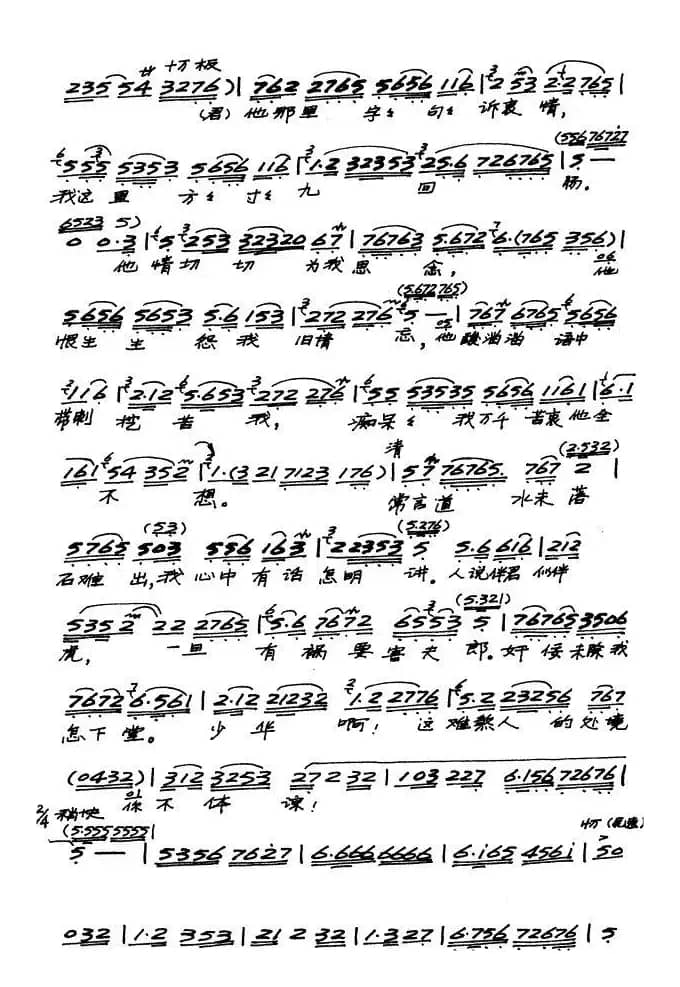 サ 十万板
235 54 3276) | 762 2765 5656 116 | 2 53 2·2 765 |
(君)他那里 字々 句々 诉衷情,
(5567672̇7
555 5353 5656 116 | 1·2 32353 25·6 726765 | 5 —
我这里 方々 寸々 九 回 肠。
6523 5)
0 0·3 | 5 253 32320 67 | 76763 5·672 76·(765 356) |
他 情切 切 为我思 念, 他
(5·672765)
5656 5653 5·6 153 | 272 276 5 — | 767 6765 5656
恨生 生 怨 我 旧情 忘, 他酸溜溜 语中
116 | 2·12 5·653 272 276 | 55 53535 5656 1161 | 6·1
带刺 挖 苦 我, 痴呆々 我万千 苦衷他全
清 (2·532)
161 54 352 | 1·(3 217123 176) | 57 76765· 767 2 |
不 想。 常言道 水未落
(53) (5·276)
5765 503 556 163 | 22353 5 5·6 616 | 212
石难 出,我 心中 有 话 怎明 讲。人说伴君 似伴
(5·321)
535 2 22 2765 | 5·6 7672 6553 5 | 767653506
虎, 一旦 有 祸 要 害 夫 郎。奸 佞未除我
7672 6·561 | 2·12 21232 1·2 2776 | 5·2 23256 767
怎下 堂。 少 华 啊! 这 难熬人 的处境
(0432) | 312 3253 27 2 32 | 103 227 6·156 72676 |
你 不 体 谅!
2/4 稍快
(5·555 5555 |
5 — | 5356 7627 | 6·666 6666 | 6·i65 456i | 50
032 | 1·2 353 | 21 2 32 | 1·327 | 6·756 72676 | 5